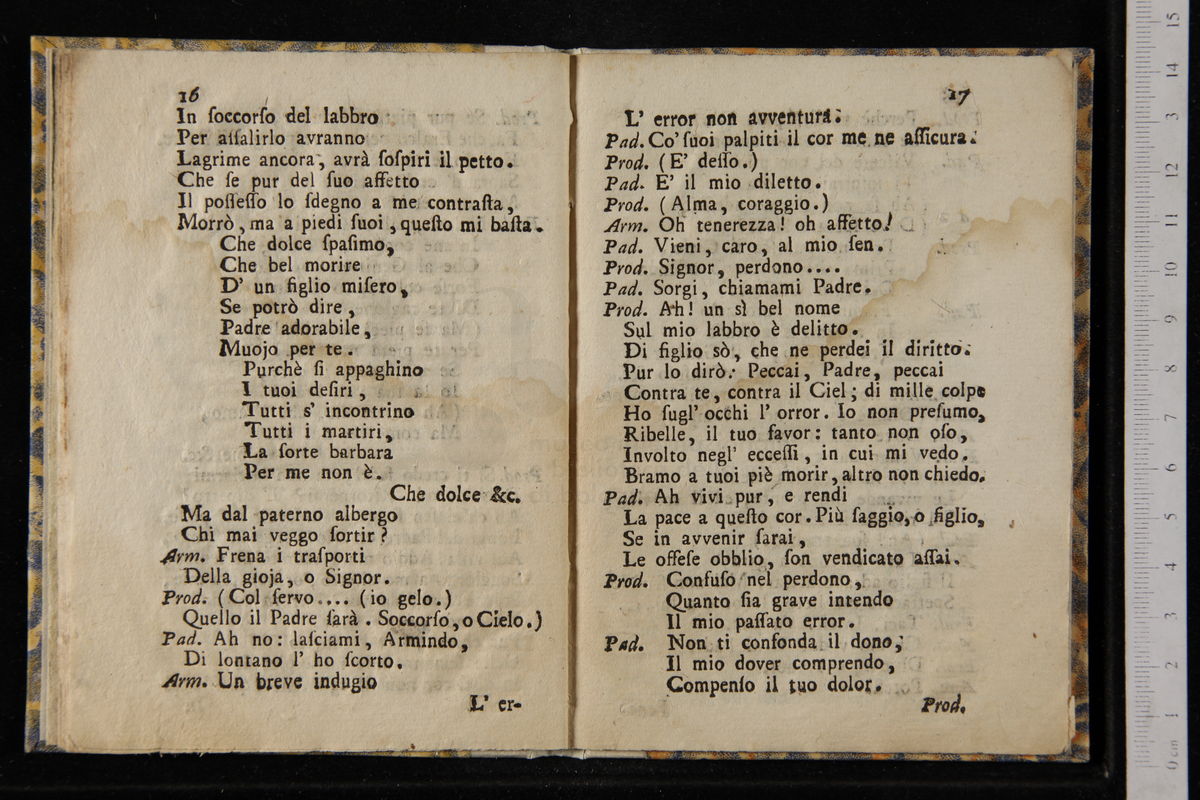 16
In ſoccorſo del labbro
Per aſſalirlo avranno
Lagrime ancora, avrà ſoſpiri il petto.
Che ſe pur del ſuo affetto
Il poſſeſſo lo ſdegno a me contraſta,
Morrò, ma a piedi ſuoi, queſto mi baſta.
Che dolce ſpaſimo,
Che bel morire
D' un figlio miſero,
Se potrò dire,
Padre adorabile,
Muojo per te.
Purchè ſi appaghino
I tuoi deſiri,
Tutti s' incontrino
Tutti i martiri,
La ſorte barbara
Per me non è.
Che dolce &c.
Ma dal paterno albergo
Chi mai veggo ſortir?
Arm. Frena i traſporti
Della gioja, o Signor.
Prod. (Col ſervo.... (io gelo.)
Quello il Padre ſarà. Soccorſo, o Cielo.)
Pad. Ah no: laſciami, Armindo,
Di lontano l' ho ſcorto.
Arm. Un breve indugio
L' er-
17
L' error non avventura.
Pad. Co' ſuoi palpiti il cor me ne aſſicura.
Prod. (E' deſſo.)
Pad. E' il mio diletto.
Prod. (Alma, coraggio.)
Arm. Oh tenerezza! oh affetto!
Pad. Vieni, caro, al mio ſen.
Prod. Signor, perdono....
Pad. Sorgi, chiamami Padre.
Prod. Ah! un sì bel nome
Sul mio labbro è delitto.
Di figlio sò, che ne perdei il diritto.
Pur lo dirò: Peccai, Padre, peccai
Contra te, contra il Ciel; di mille colpe
Ho ſugl' occhi l' orror. Io non preſumo,
Ribelle, il tuo favor: tanto non oſo,
Involto negl' ecceſſi, in cui mi vedo.
Bramo a tuoi piè morir, altro non chiedo.
Pad. Ah vivi pur, e rendi
La pace a queſto cor. Più ſaggio, o figlio,
Se in avvenir ſarai,
Le offeſe obblio, ſon vendicato aſſai.
Prod. Confuſo nel perdono,
Quanto ſia grave intendo
Il mio paſſato error.
Pad. Non ti confonda il dono;
Il mio dover comprendo,
Compenſo il tuo dolor.
Prod.